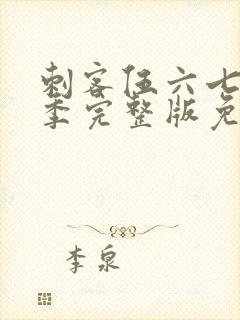 刺客伍六七
季完整版免
李泉